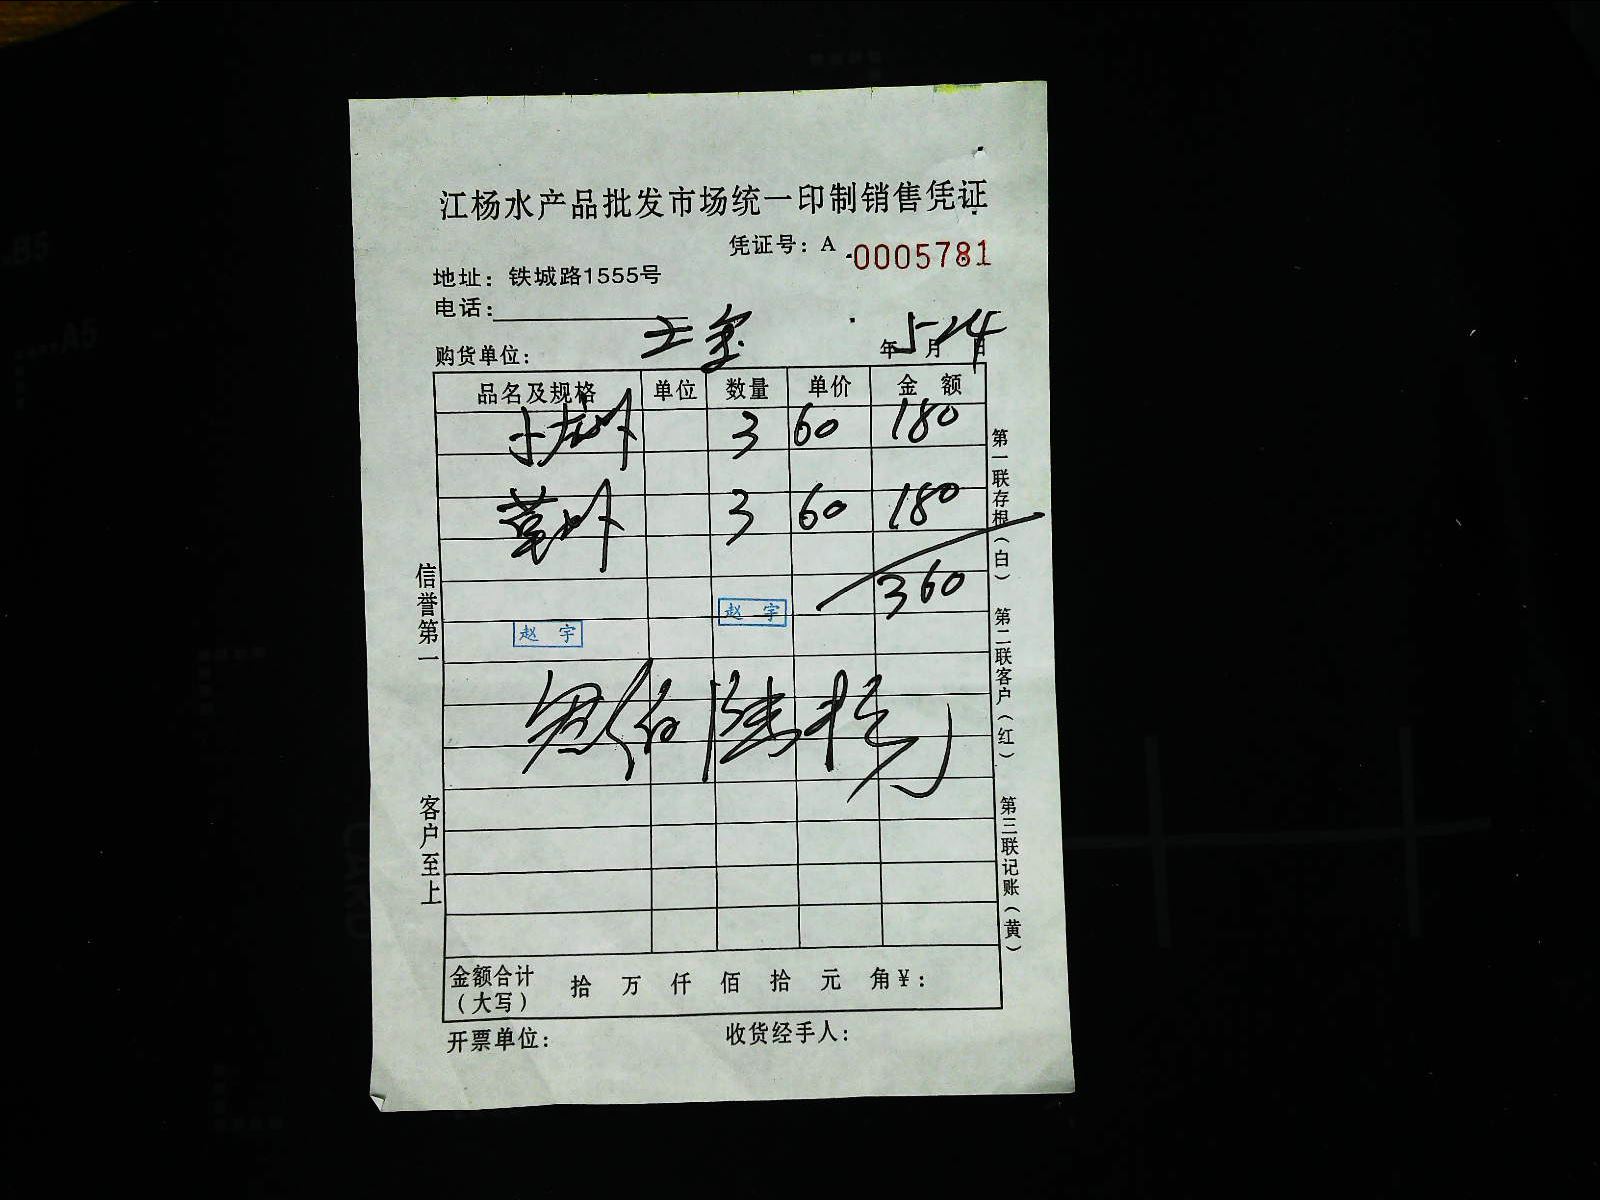 江杨水产品批发市场统一印制销售凭证
凭证号：A 0005781
地址：铁城路1555号
电话：
购货单位： 年 5 月 24 日
品名及规格 单位 数量 单价 金额
小龙虾 3 60 180
草虾 3 60 180
360
赵宇
赵宇
叁佰陆拾元
金额合计（大写） 拾 万 仟 佰 拾 元 角 ¥：
开票单位： 收货经手人：
信誉第一
客户至上
第一联存根（白）
第二联客户（红）
第三联记账（黄）